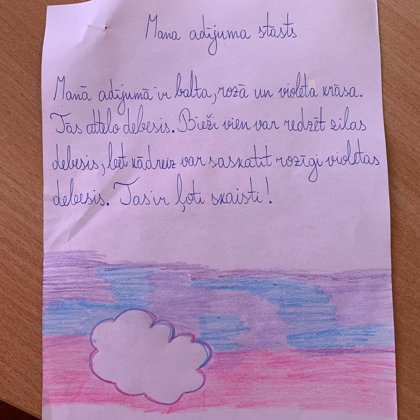 Mana adījuma stāsts
Manā adījumā ir balta, rozā un violeta krāsa.
Tas attēlo debesis. Bieži vien var redzēt zilas
debesis, bet kādreiz var saskatīt rozīgi violetas
debesis. Tas ir ļoti skaisti!